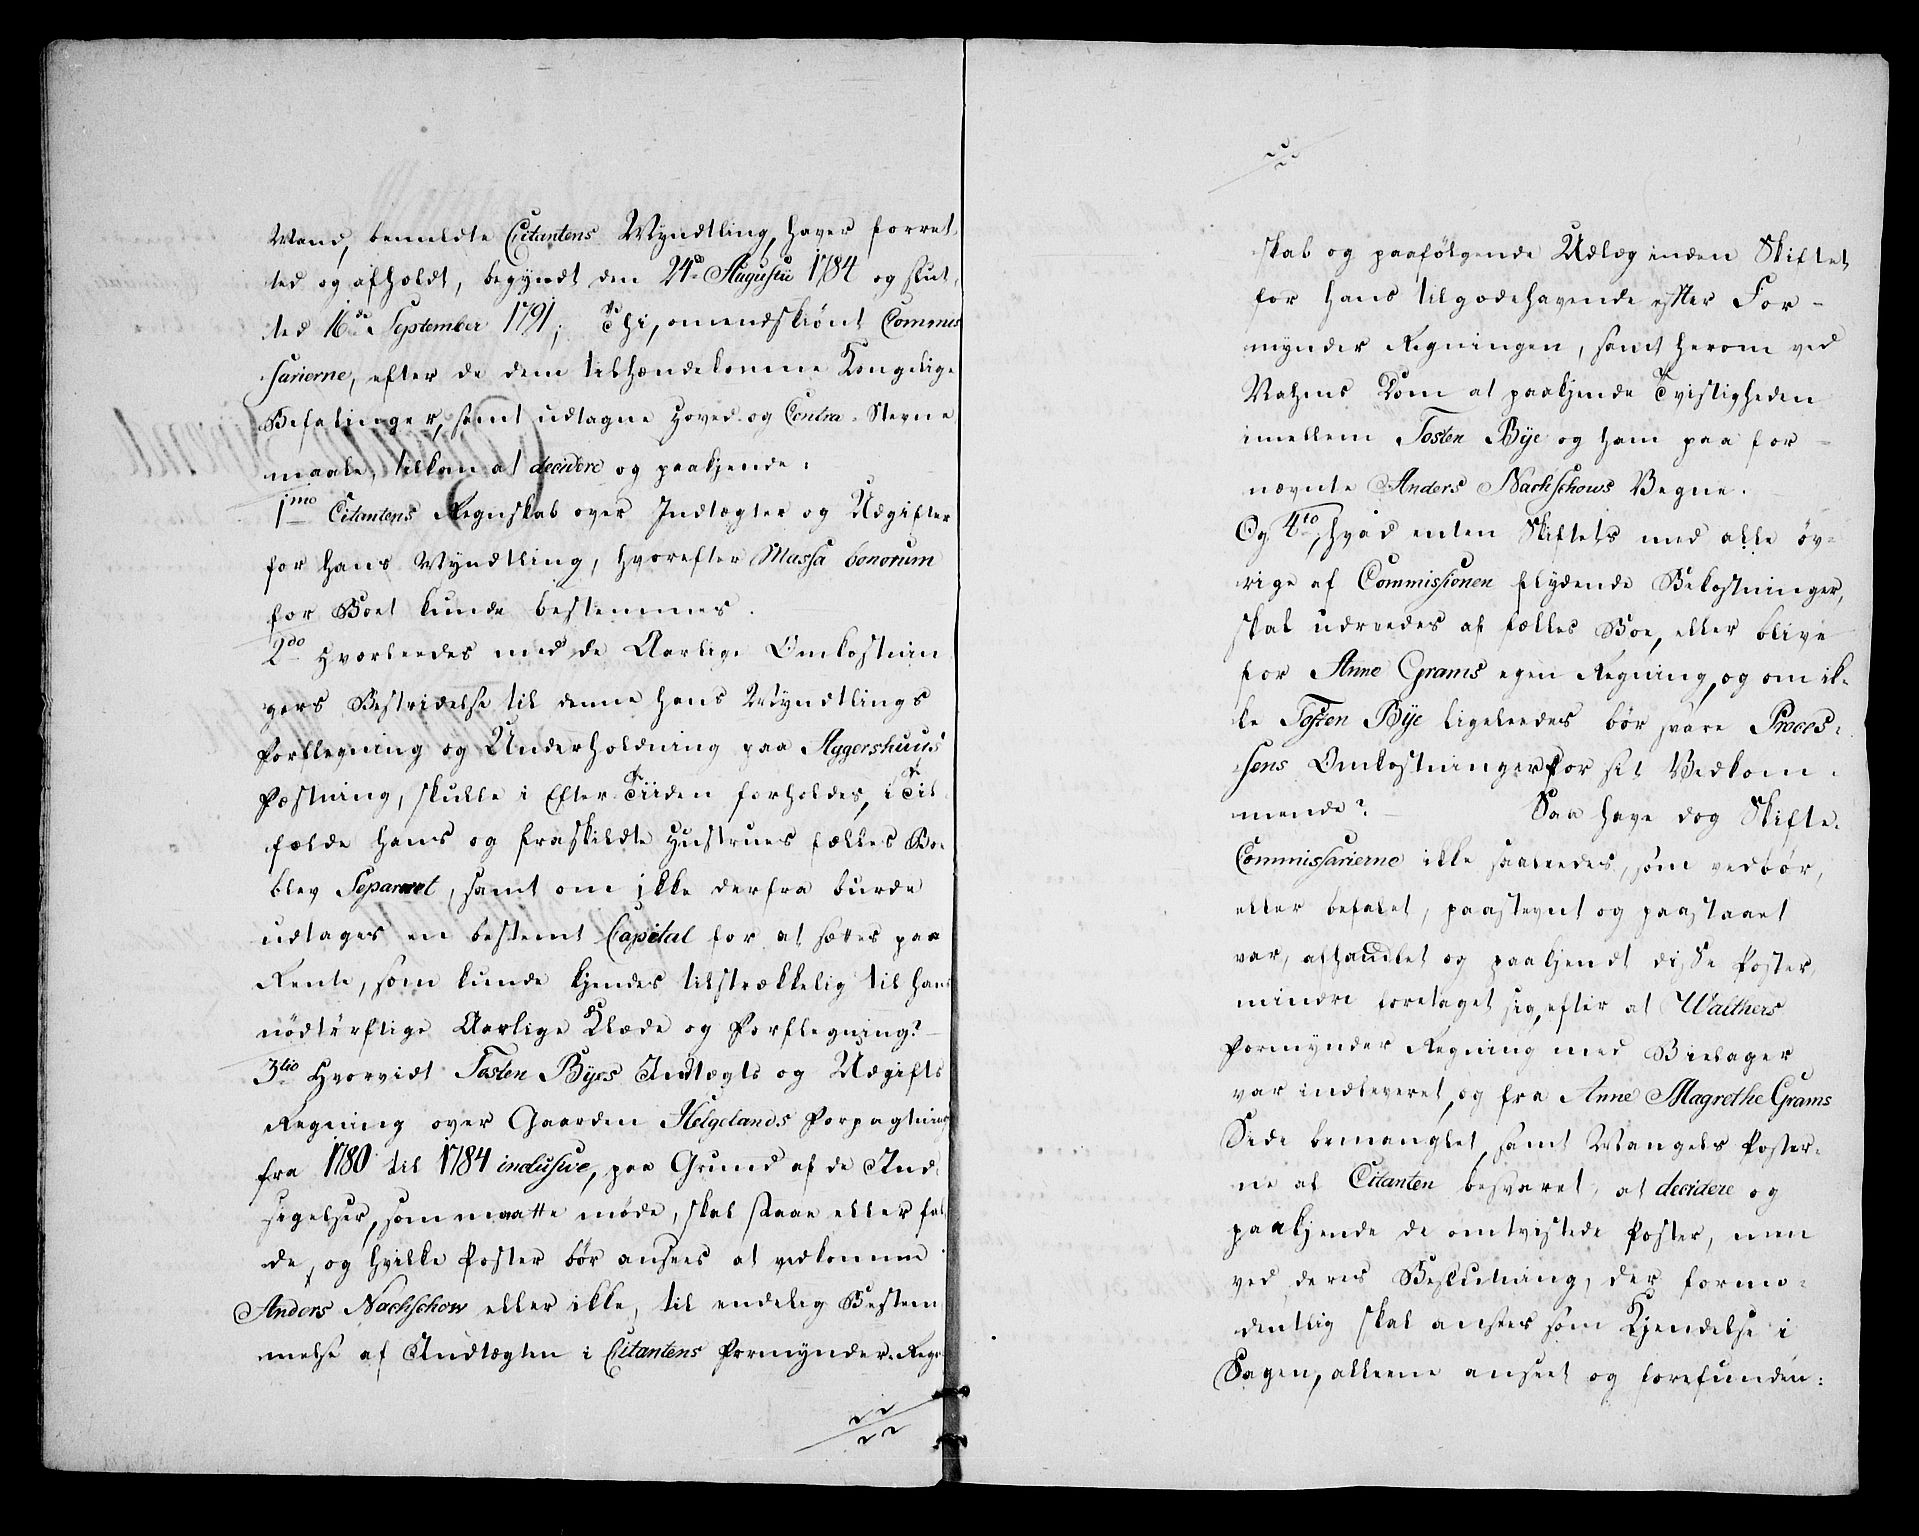 Mand, bemeldte Citantens Myndtling, haver forret,
ted og afholdt, begyndt den 24de Augustii 1784 og slut,
ted 16de September 1791; Thi, omendskiønt Commis
sarierne, efter de dem tilhændekomne Kongelige
Befalinger, samt udtagne Hoved og Contra-Stevne
maale, tilkom at decidere og paakjende:
1mo Citantens Regnskab over Indtægter og Udgifter
for hans Myndtling, hvorefter Massa bonorum
for Boet kunde bestemmes.
2do Hvorleedes med de Aarlige Omkostnin
gers Bestridelse til denne hans Myndtlings
Forflegning og Underholdning paa Aggershuus
Fæstning, skulle i Efter Tiiden forholdes, i Til
fælde hans og fraskildte Hustrues fælles Boe
blev Separeret, samt om ikke derfra burde
udtages en bestemt Capital for at sættes paa
Rente, som kunde kjendes tilstrækkelig til hans
nödtürftige Aarlige Klæde og Forflegning?
3tio Hvorvidt Tosten Byes Indtægts og Udgifts
Regning over Gaarden Helgelands Forpagtning
fra 1780 til 1784 inclusive, paa Grund af de Ind,
sigelser, som maatte møde, skal staae eller fal,
de, og hvilke Poster bør ansees at vedkomme
Anders Nachschow eller ikke, til endelig Bestem
melse af Indtægten i Citantens Formynder-Regn
skab og paafölgende Udlæg inden Skiftet
for hans tilgodehavende efter For-
mynder Regningen, samt herom ved
Nahms Dom at paakjende Tvistigheden
imellem Tosten Bÿe og ham paa for-
nævnte Anders Nachschows Vegne.
Og 4to, hvad enten Skiftets med alle öv-
rige af Commissionen flydende Bekostninger,
skal udreedes af fælles Boe, eller blive
for Anne Grams egen Regning, og om ik-
ke Tosten Bÿe ligeleedes bör svare Proces-
sens Omkostninger for sit Vedkom-
mende? - Saa have dog Skifte-
Commissarierne ikke saaleedes, som vedbör,
eller befalet, paastevnt og paastaaet
var, afhandlet og paakjendt disse Poster,
mindre foretaget sig, efter at Walthers
Formynder Regning med Bielager
var indleveret, og fra Anne Magrethe Grams
Side bemanglet, samt Mangels Poster-
ne af Citanten besvaret, at decidere og
paakjende de omtvistede Poster, men
ved deres Beslutning, der formo-
dentlig skal ansees som Kjendelse i
Sagen, alleene anseet og forefunden: